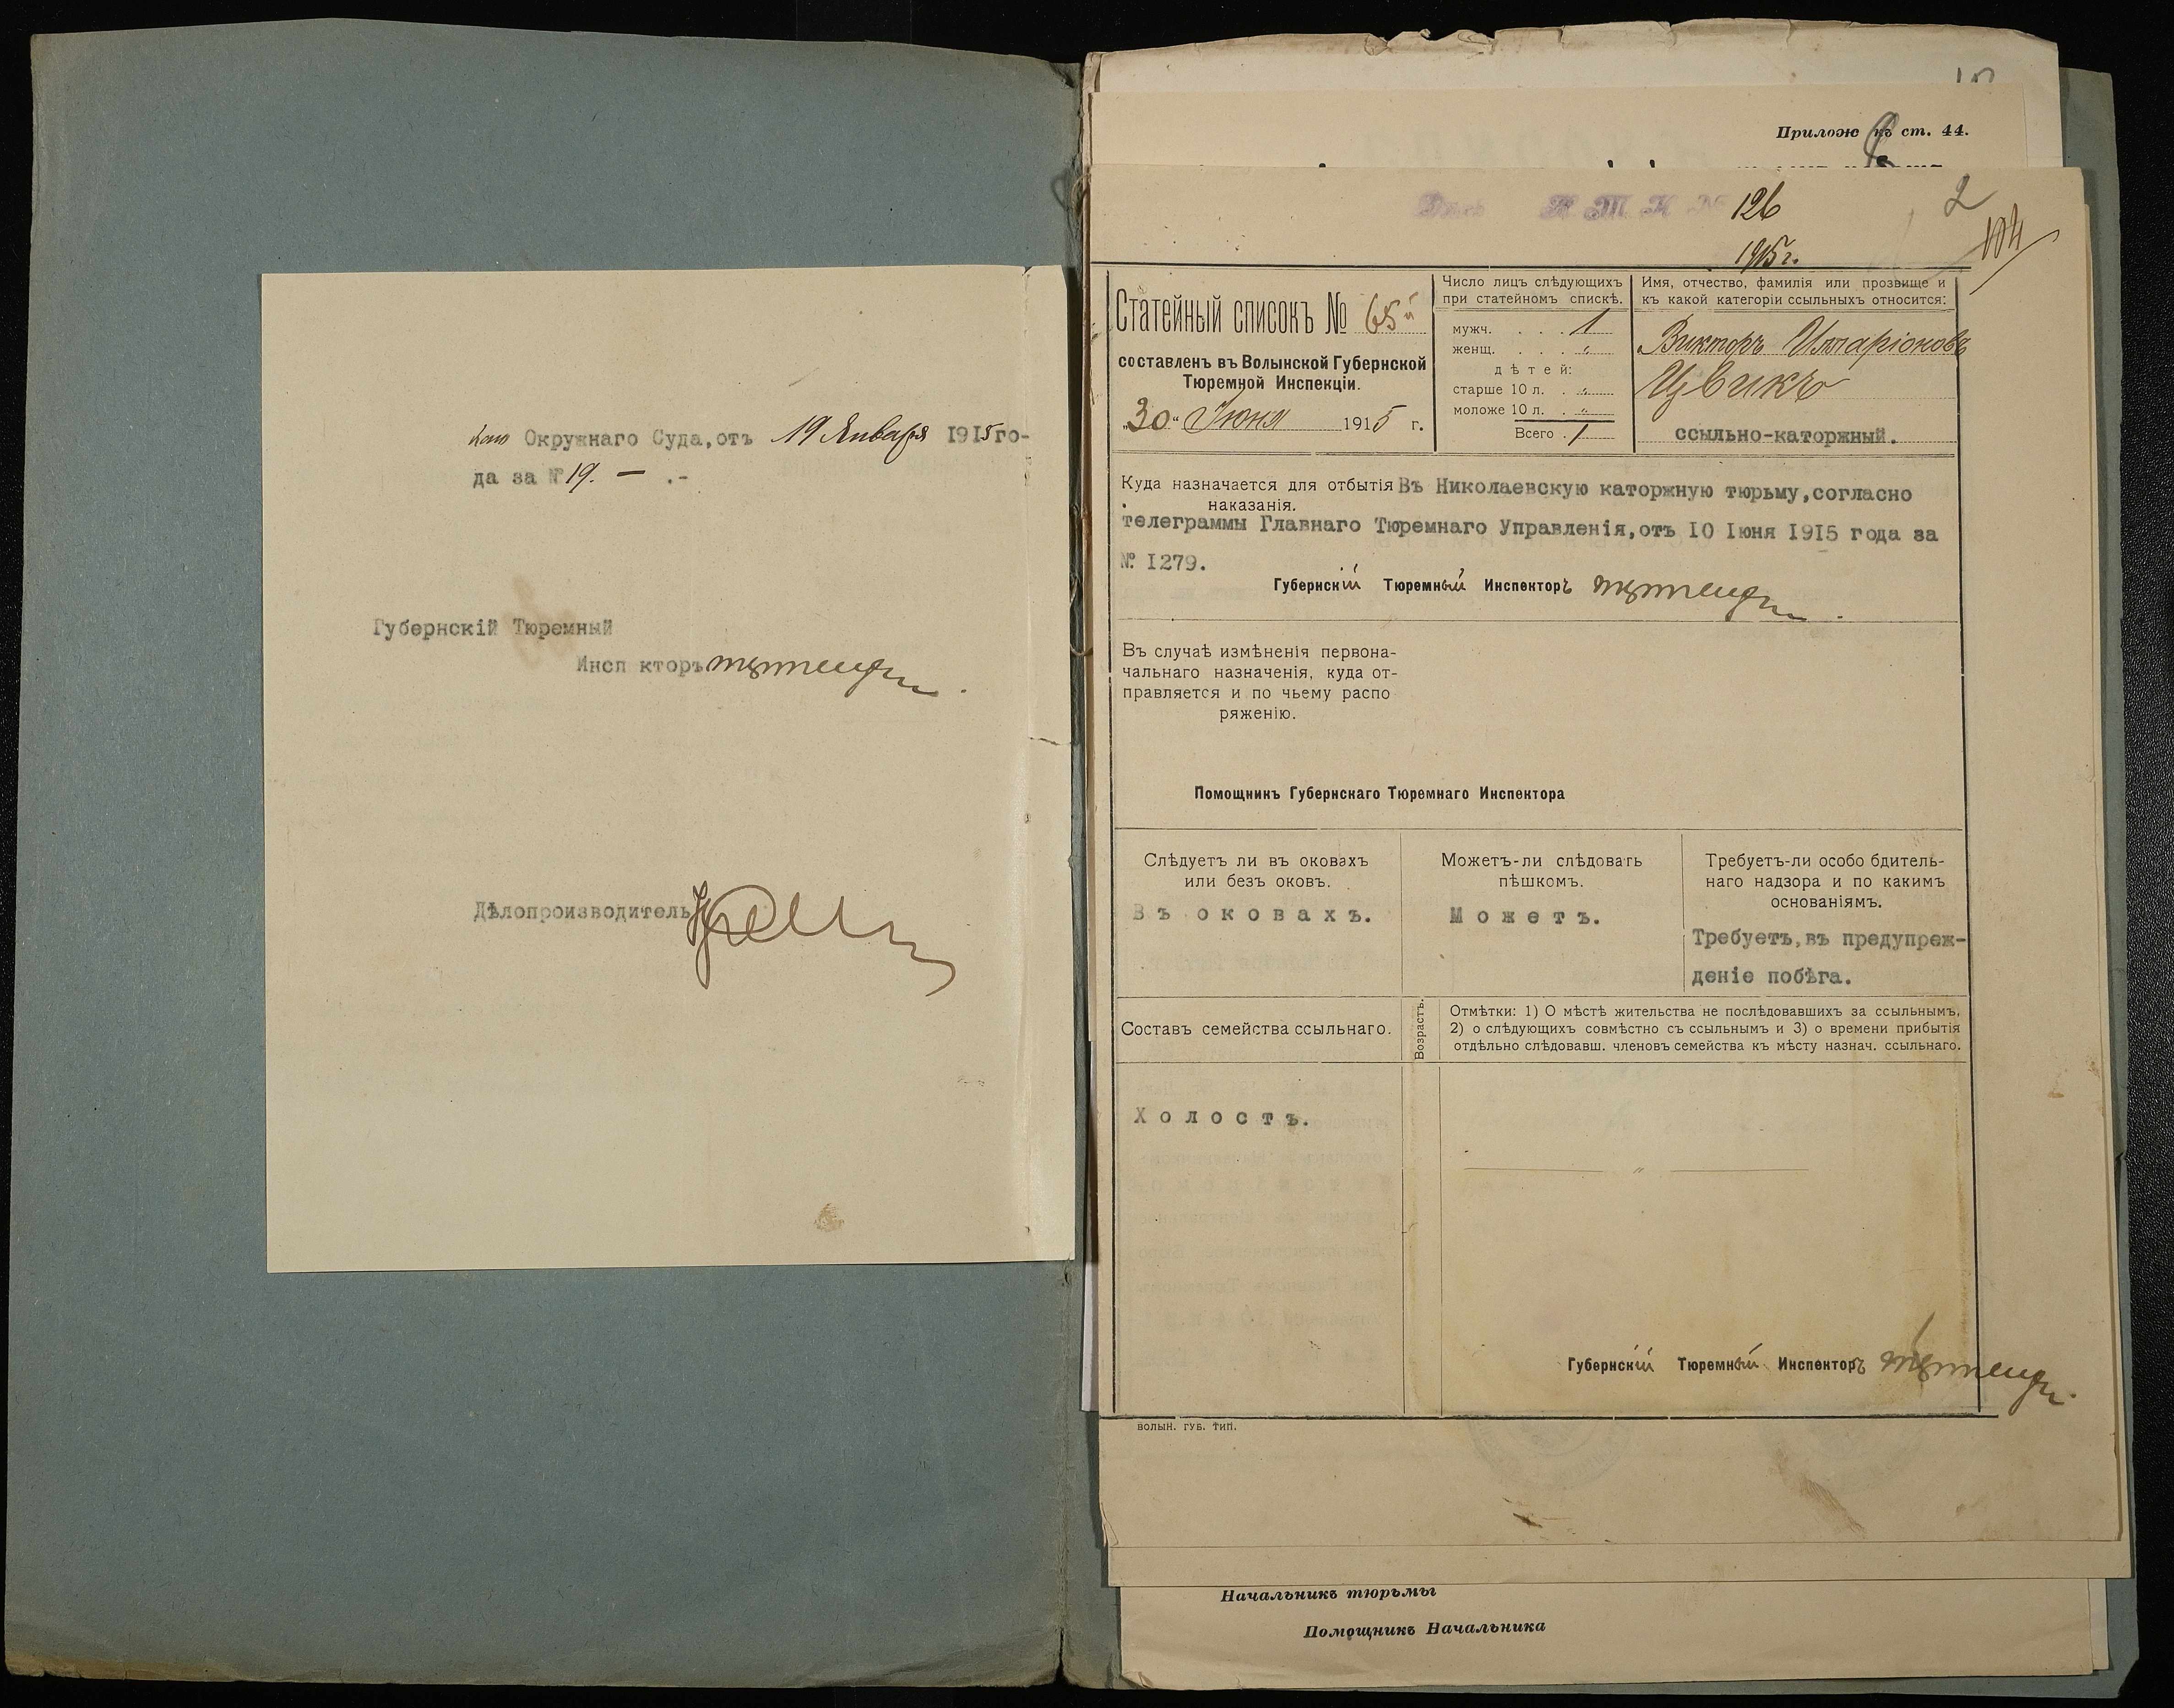 каго Окружнаго Суда,отъ 19 Января 1915го-
да за № 19. — .-
Губернскій Тюремный
Инсп кторъ
Дѣлопроизводитель
Прилож къ ст. 44.
Н Т К № 126
2
1915 г.
104
Статейный списокъ № 65й
составленъ въ Волынской Губернской
Тюремной Инспекціи.
„30“ Іюня 1915 г.
Число лицъ слѣдующихъ
при статейномъ спискѣ.
мужч. . . . 1
женщ. . . . „
дѣтей:
старше 10 л. . „
моложе 10 л. . „
Всего . 1
Имя, отчество, фамилія или прозвище и
къ какой категоріи ссыльныхъ относится:
Викторъ Илларіоновъ
Цвикъ
ссыльно-каторжный.
Куда назначается для отбытія Въ Николаевскую каторжную тюрьму,согласно
наказанія.
телеграммы Главнаго Тюремнаго Управленія,отъ 10 Іюня 1915 года за
№ 1279.
Губернскій Тюремный Инспекторъ
Въ случаѣ измѣненія первона-
чальнаго назначенія, куда от-
правляется и по чьему распо
ряженію.
Помощникъ Губернскаго Тюремнаго Инспектора
Слѣдуетъ ли въ оковахъ
или безъ оковъ.
Въ оковахъ.
Можетъ-ли слѣдовать
пѣшкомъ.
Можетъ.
Требуетъ-ли особо бдитель-
наго надзора и по какимъ
основаніямъ.
Требуетъ,въ предупреж-
деніе побѣга.
Составъ семейства ссыльнаго.
Возрастъ.
Отмѣтки: 1) О мѣстѣ жительства не послѣдовавшихъ за ссыльнымъ,
2) о слѣдующихъ совмѣстно съ ссыльнымъ и 3) о времени прибытія
отдѣльно слѣдовавш. членовъ семейства къ мѣсту назнач. ссыльнаго.
Холостъ.
„
Губернскій Тюремный Инспекторъ
ВОЛЫН. ГУБ. ТИП.
Начальникъ тюрьмы
Помощникъ Начальника